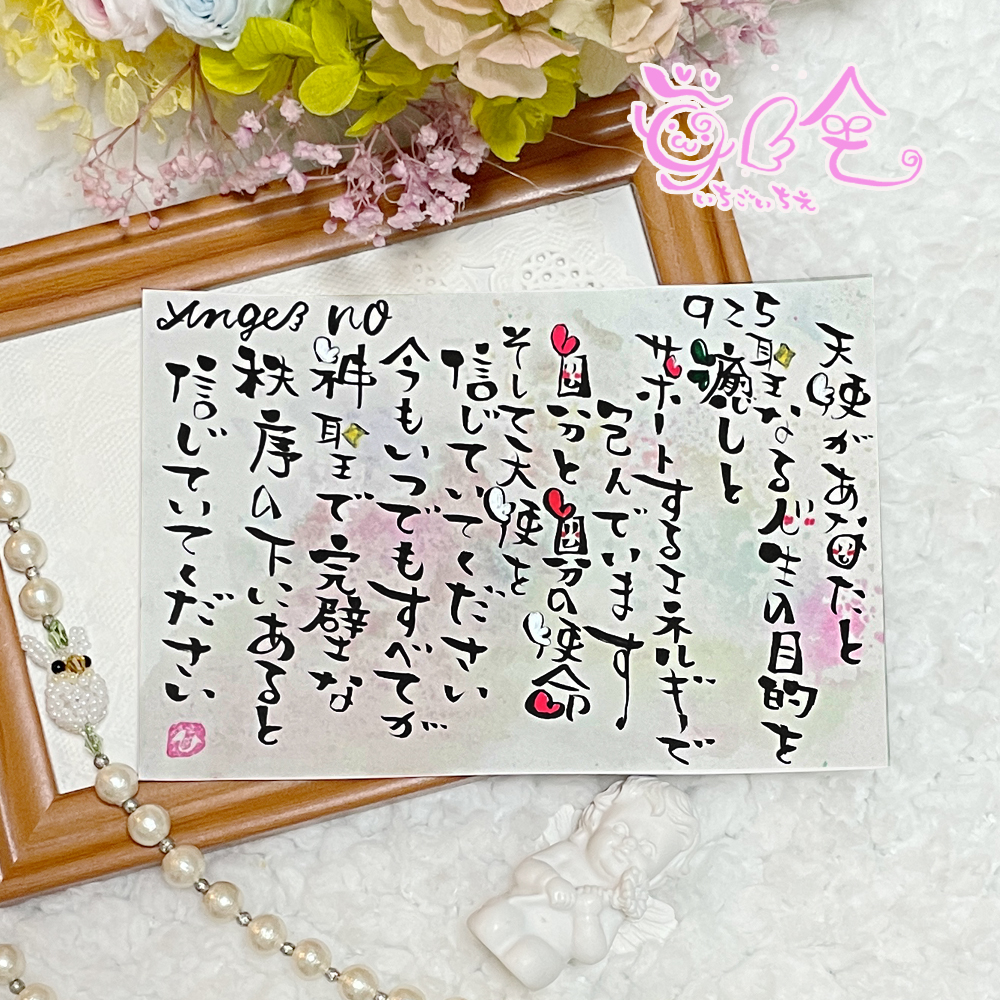 苺一舍
いちごいちえ
Angel no
925
天使があなたと
聖なる人生の目的を
癒しと
サポートするエネルギーで
包んでいます
自分と自分の使命
そして天使を
信じていてください
今もいつでもすべてが
神聖で完璧な
秩序の下にあると
信じていてください